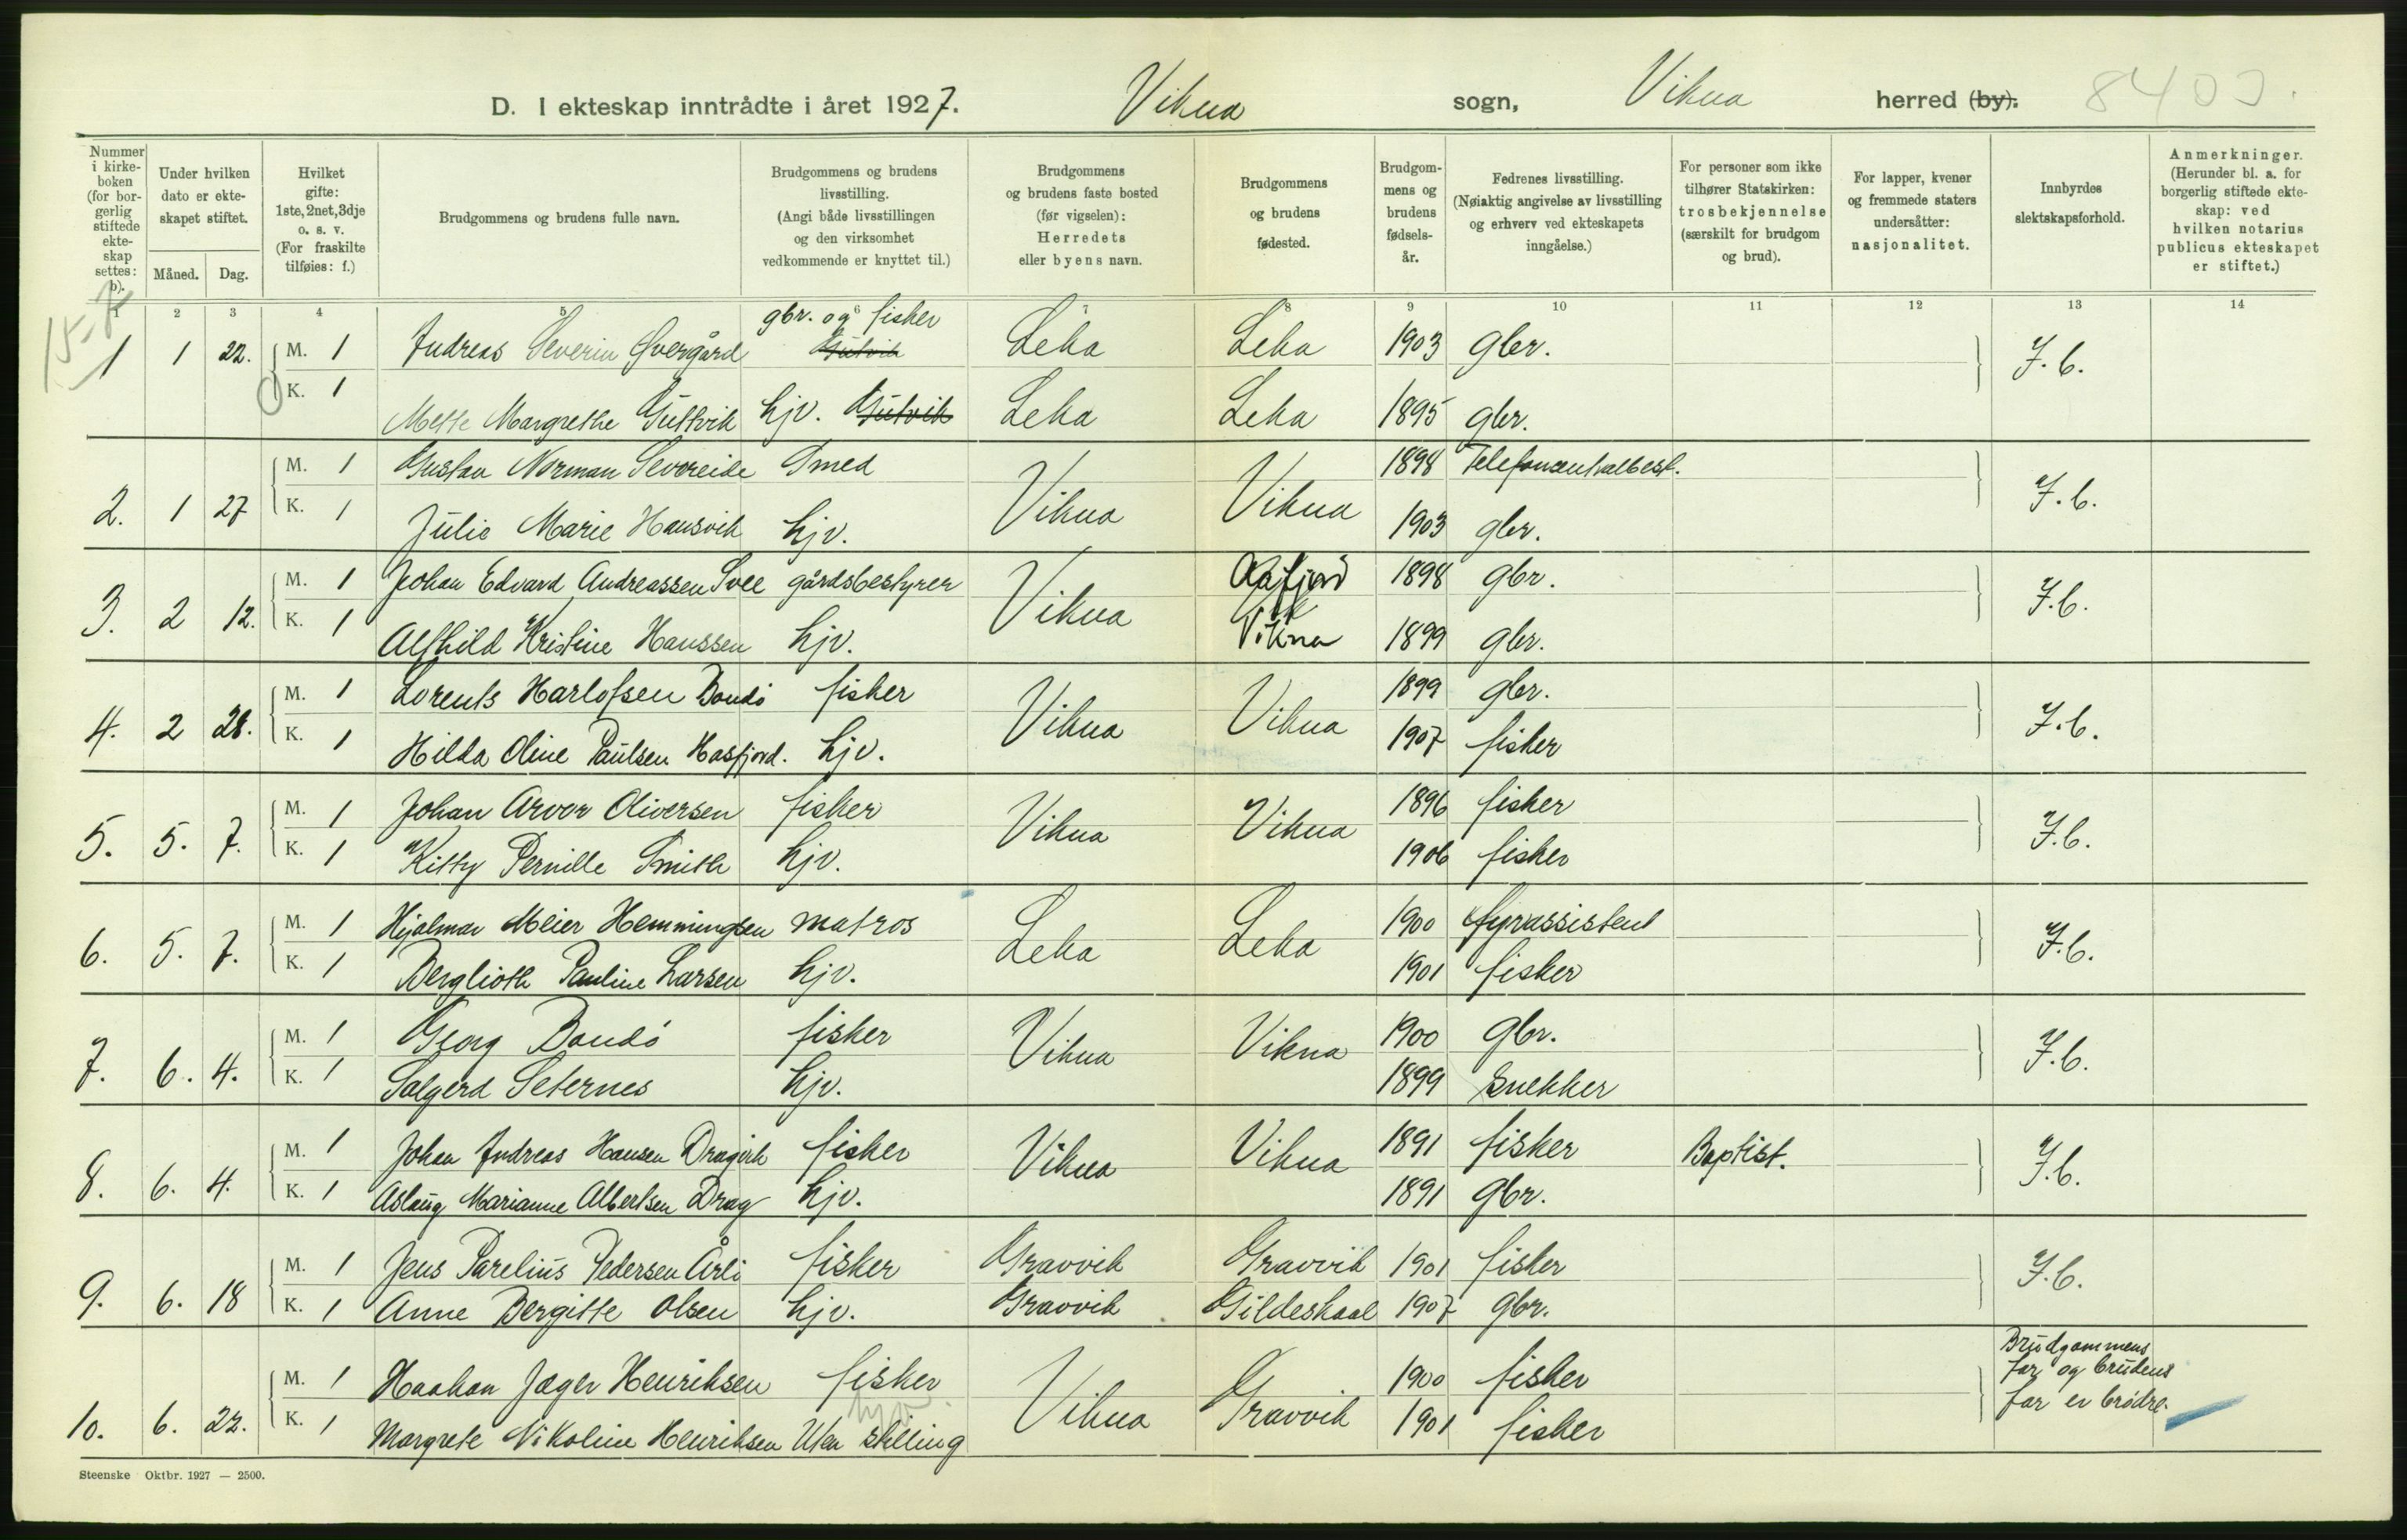 D. I ekteskap inntrådte i året 1927. Vikna sogn, Vikna herred (by). 8403.
Nummer i kirke-boken (for bor-gerlig stiftede ekte-skap settes: b).
Under hvilken dato er ekte-skapet stiftet.
Måned. Dag.
Hvilket gifte: 1ste, 2net, 3dje o. s. v. (For fraskilte tilføies: f.)
Brudgommens og brudens fulle navn.
Brudgommens og brudens livsstilling. (Angi både livsstillingen og den virksomhet vedkommende er knyttet til.)
Brudgommens og brudens faste bosted (før vigselen): Herredets eller byens navn.
Brudgommens og brudens fødested.
Brudgom-mens og brudens fødsels-år.
Fedrenes livsstilling. (Nøiaktig angivelse av livsstilling og erhverv ved ekteskapets inngåelse.)
For personer som ikke tilhører Statskirken: trosbekjennelse (særskilt for brudgom og brud).
For lapper, kvener og fremmede staters undersåtter: nasjonalitet.
Innbyrdes slektskapsforhold.
Anmerkninger. (Herunder bl. a. for borgerlig stiftede ekte-skap: ved hvilken notarius publicus ekteskapet er stiftet.)
1 2 3 4 5 6 7 8 9 10 11 12 13 14
15-7
gbr. og fisker
1 1 22. M. 1 Andreas Severin Øvergård Gutvik Leka Leka 1903 gbr. I. b.
K. 1 Mette Margrethe Guttvik hjv. Gutvik Leka Leka 1895 gbr.
2. 1 27 M. 1 Gustav Norman Sevoreide Smed Vikna Vikna 1898 Telefoncentralbest. I. b.
K. 1 Julie Marie Hansvik hjv. 1903 gbr.
3. 2 12. M. 1 Johan Edvard Andreassen Svee gårdsbestyrer Vikna Aafjord 1898 gbr. I. b.
K. 1 Alfhild Kristine Hanssen hjv. Vikna 1899 gbr.
4. 2 28. M. 1 Lorents Harlofsen Bondø fisker Vikna Vikna 1899 gbr. I. b.
K. 1 Hilda Oline Paulsen Hasfjord. hjv. 1907 fisker
5. 5. 7. M. 1 Johan Arvor Oliversen fisker Vikna Vikna 1896 fisker I. b.
K. 1 Kitty Pernille Smith hjv. 1906 fisker
6. 5. 7. M. 1 Hjalmar Meier Hemmingsen matros Leka Leka 1900 fyrassistent I. b.
K. 1 Berglioth Pauline Larsen hjv. 1901 fisker
7. 6. 4. M. 1 Georg Bondø fisker Vikna Vikna 1900 gbr. I. b.
K. 1 Solgerd Seternes hjv. 1899 snekker
8. 6. 4. M. 1 Johan Andreas Hansen Dragvik fisker Vikna Vikna 1891 fisker Baptist. I. b.
K. 1 Aslaug Marianne Albertsen Drag hjv. 1891 gbr.
9. 6. 18 M. 1 Jens Parelius Pedersen Årli fisker Gravvik Gravvik 1901 fisker I. b.
K. 1 Anne Bergitte Olsen hjv. Gravvik Gildeskaal 1907 gbr.
10. 6. 22. M. 1 Haakon Jæger Henriksen fisker Vikna Gravvik 1900 fisker Brudgommens far og brudens far er brødre.
hjv.
K. 1 Margrete Nikoline Henriksen Uten stilling 1901 fisker
Steenske Oktbr. 1927 — 2500.